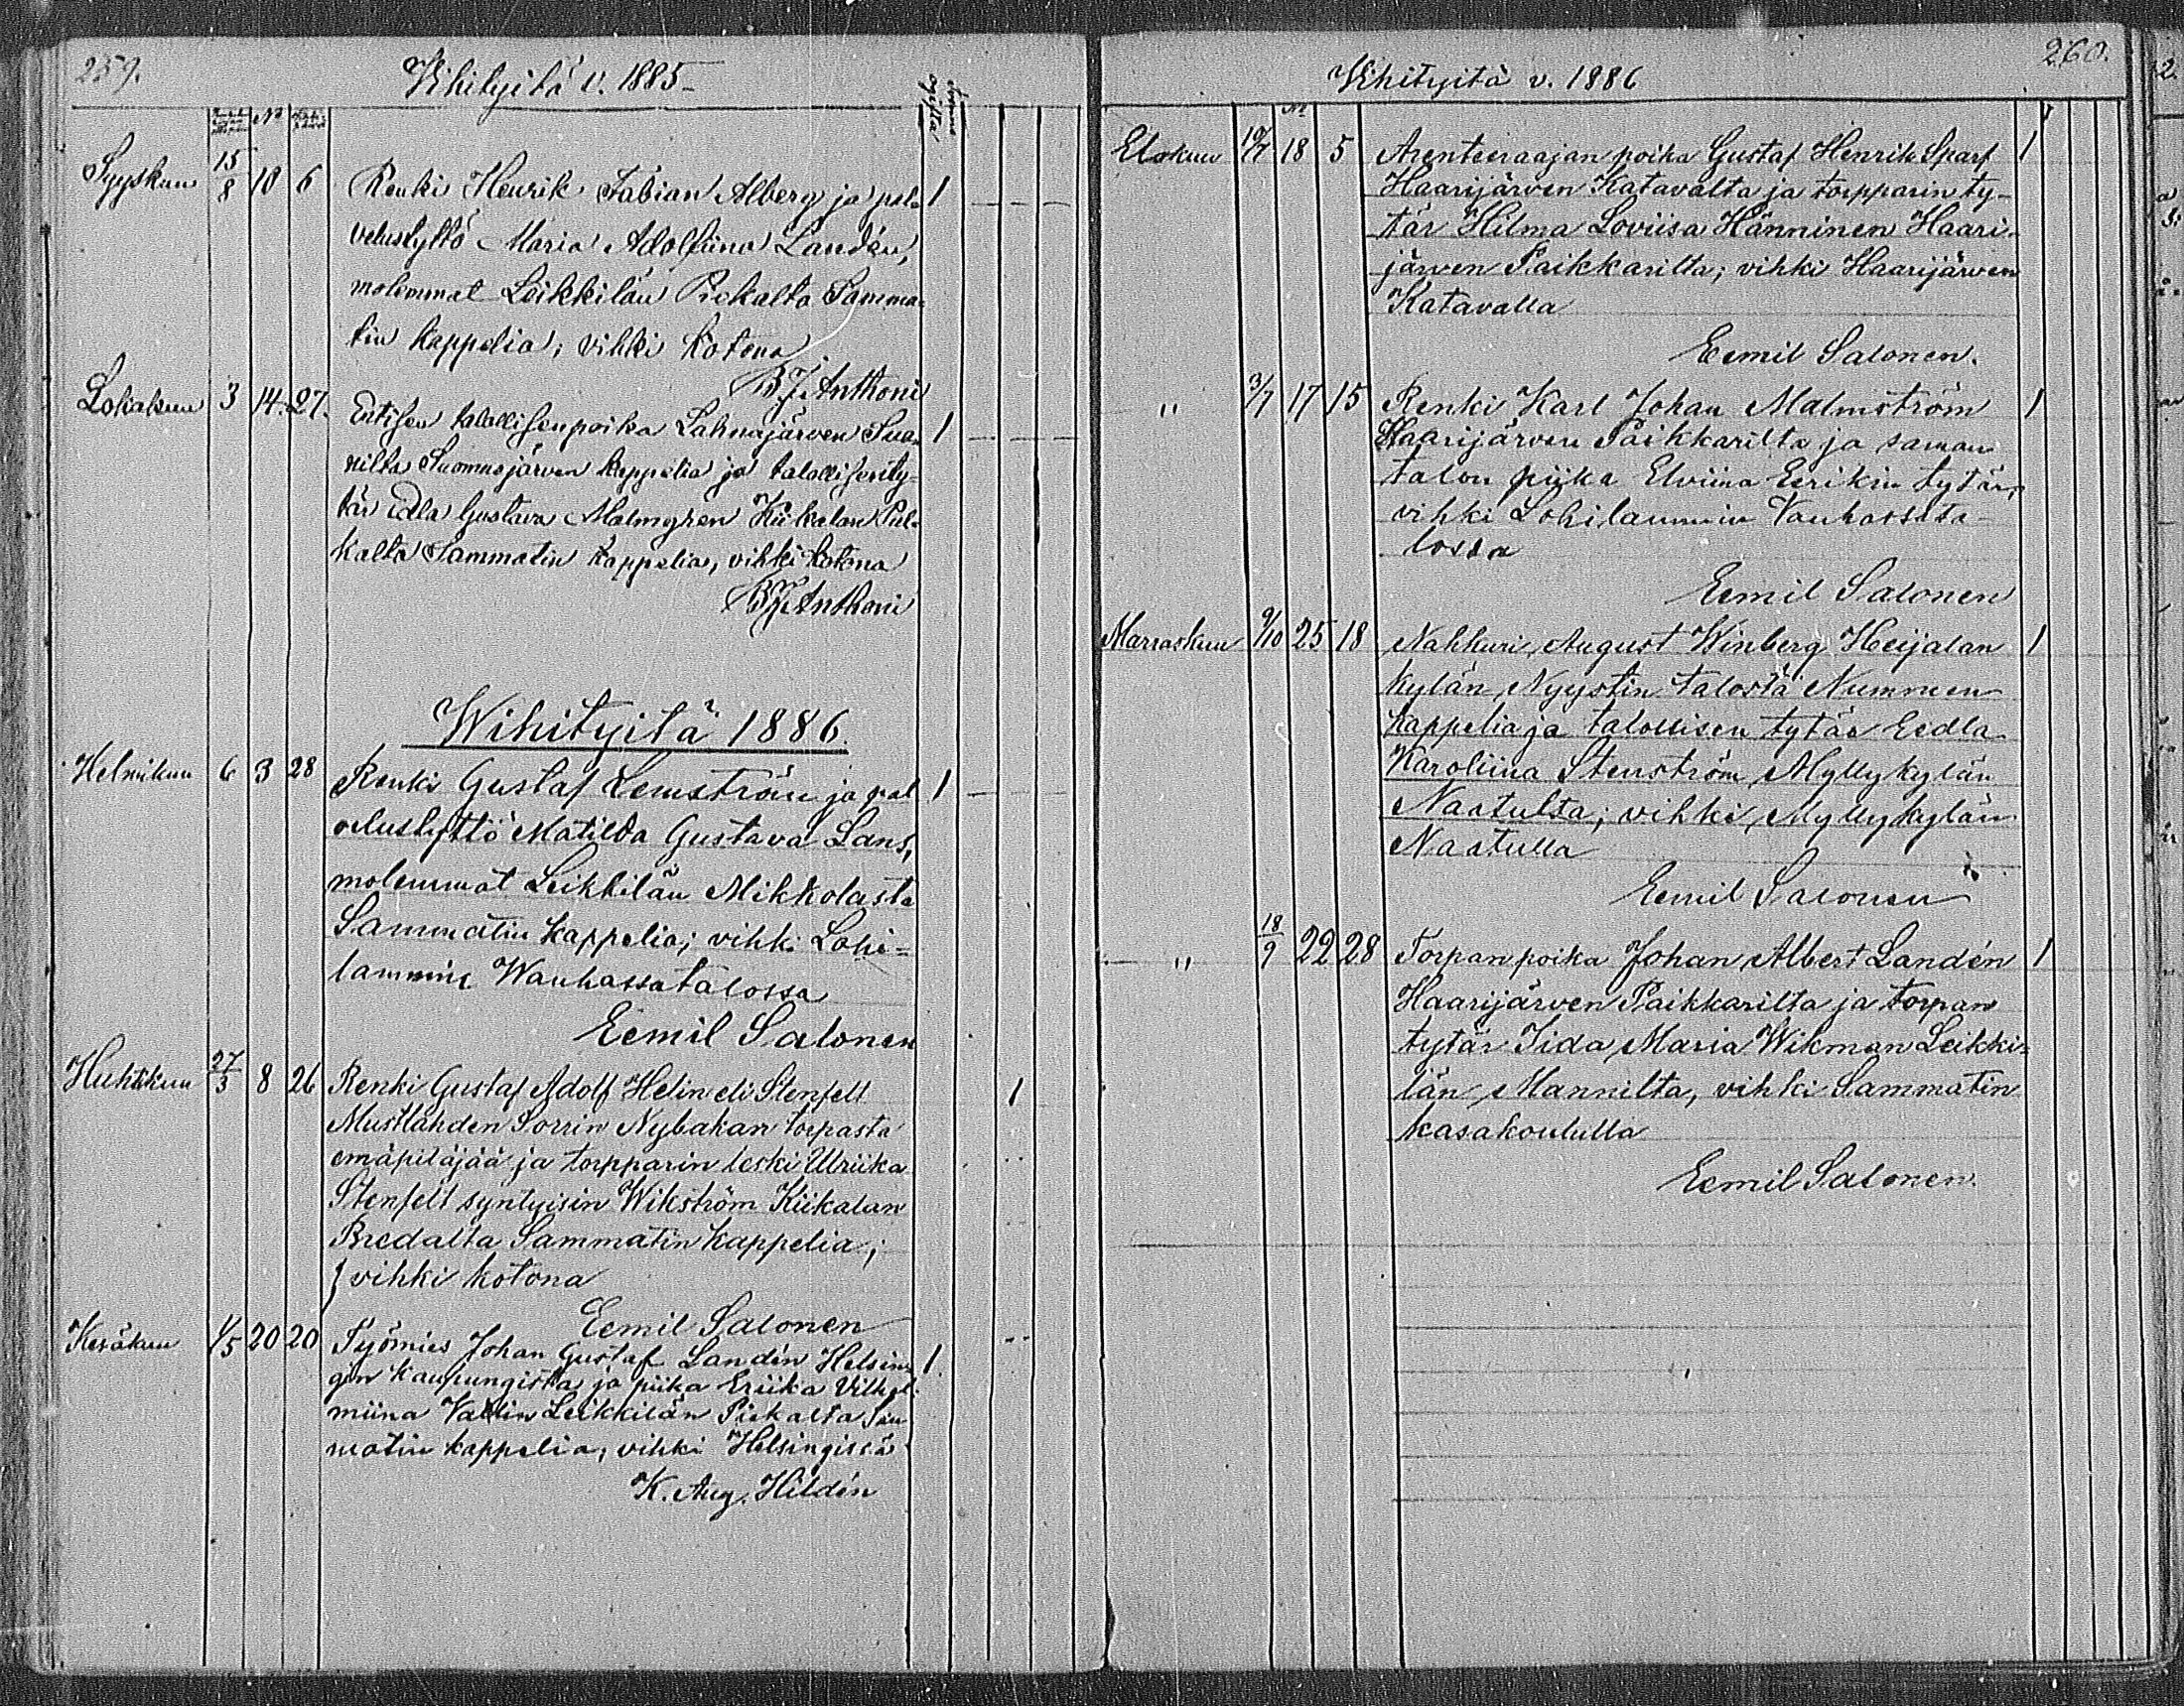 259.
Vihityitä v. 1885
No
Syyskuu 15/8 10 6 Renki Henrik Fabian Alberg ja pal- 1
velustyttö Maria Adolfiina Landén,
molemmat Leikkilän Piekalta Samma-
tin kappelia; vihki kotona
B. J. Anthoni
Lokakuu 3 14. 27. Entisen talollisen poika Lahnajärven Sua- 1
nilta Suomusjärven kappelia ja talollisen ty-
tär Edla Gustava Malmgren Kiikalan Pul-
kalta Sammatin kappelia, vihki kotona
B. J. Anthoni
Wihityitä 1886.
Helmikuu 6 3 28 Renki Gustaf Lemström ja pal 1
velustyttö Matilda Gustava Lans,
molemmat Leikkilän Mikkolasta
Sammatin kappelia; vihki Lohi=
lammin Wanhassatalossa
Eemil Salonen
Huhtikuu 27/3 8 26 Renki Gustaf Adolf Helin eli Stenfelt 1
Mustlahden Sorrin Nybakan torpasta
emäpitäjää ja torpparin leski Ulriika
Stenfelt syntyisin Wikström Kiikalan
Bredalta Sammatin kappelia;
vihki kotona
Eemil Salonen
Kesäkuu 1/5 20 20 Työmies Johan Gustaf Landén Helsin- 1.
gin kaupungista ja piika Eriika Vilhel-
miina Vallin Leikkilän Piekalta Sam
matin kappelia, vihki Helsingissä
K. Aug. Hildén
260.
Vihityitä v. 1886
No
Elokuu 10/7 18 5 Arenteeraajan poika Gustaf Henrik Sparf 1
Haarijärven Katavalta ja torpparin ty-
tär Hilma Loviisa Hänninen Haari-
järven Paikkarilta; vihki Haarijärven
Katavalla
Eemil Salonen.
" 3/7 17 15 Renki Karl Johan Malmström 1
Haarijärven Paikkarilta ja saman
talon piika Elviina Eerikin tytär,
vihki Lohilammin Vanhassata-
lossa
Eemil Salonen
Marraskuu 9/10 25 18 Nahkuri August Winberg Heijalan 1
kylän Nyystin talosta Nummen
kappelia ja talollisen tytär Eedla
Karoliina Stenström Myllykylän
Naatulta; vihki Myllykylän
Naatulla
Eemil Salonen
" 18/9 22 28 Torpan poika Johan Albert Landén 1
Haarijärven Paikkarilta ja torpan
tytär Iida Maria Wikman Leikki=
län Mannilta, vihki Sammatin
kasakoululla
Eemil Salonen.